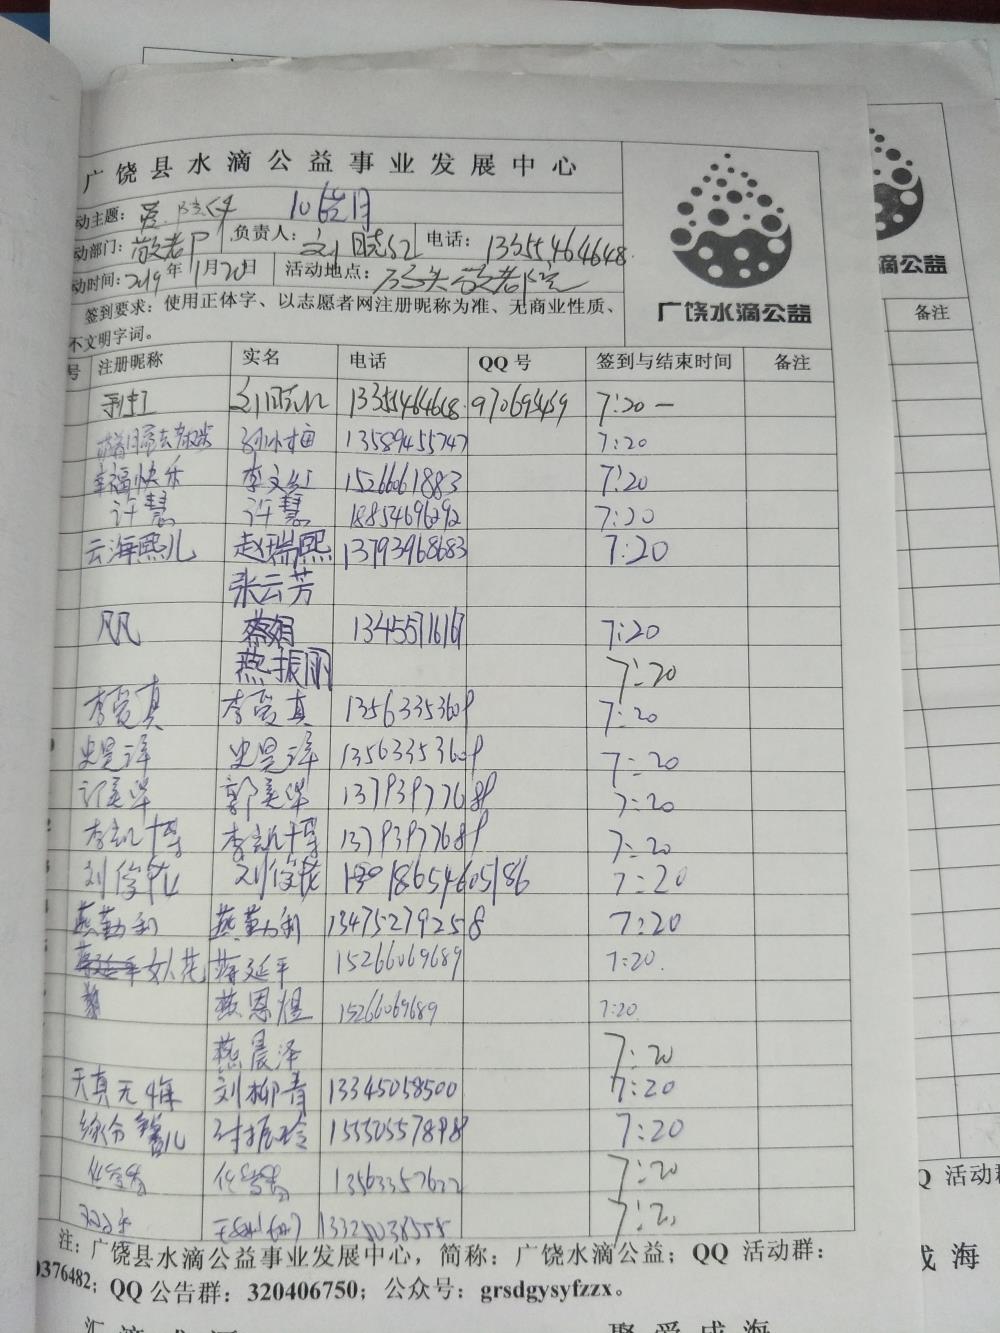 广饶县水滴公益事业发展中心
动主题：
动部门：敬老 负责人：刘晓红 电话：13355464648
动时间：2019年11月20日 活动地点：敬老院
签到要求：使用正体字、以志愿者网注册昵称为准、无商业性质、
不文明字词。
广饶水滴公益
号 注册昵称 实名 电话 QQ号 签到与结束时间 备注
13355464648 97069459 7:20 —
13589455747 7:20
幸福快乐 李文红 15266061883 7:20
许慧 许慧 18854696292 7:20
云海熙儿 赵瑞熙 13793968683 7:20
张云芳
凡凡 燕娟 13455716167 7:20
燕振丽 7:20
李爱真 李爱真 13563353609 7:20
史昊译 史昊译 13563353609 7:20
郭美华 郭美华 13793977689 7:20
李凯博 李凯博 13793977689 7:20
刘俊花 刘俊花 18654605186 7:20
燕勤利 燕勤利 13475279258 7:20
女人花 蒋延平 15266069689 7:20
燕恩煜 15266069689 7:20
燕晨泽 7:20
天真无 刘柳青 13345058500 7:20
15550557898 7:20
13563357622 7:20
13325038558
注：广饶县水滴公益事业发展中心，简称：广饶水滴公益；QQ 活动群：
0376482；QQ公告群：320406750；公众号：grsdgysyfzzx。
滴公益
备注
Q 活动群
成海
汇滴成河
聚爱成海